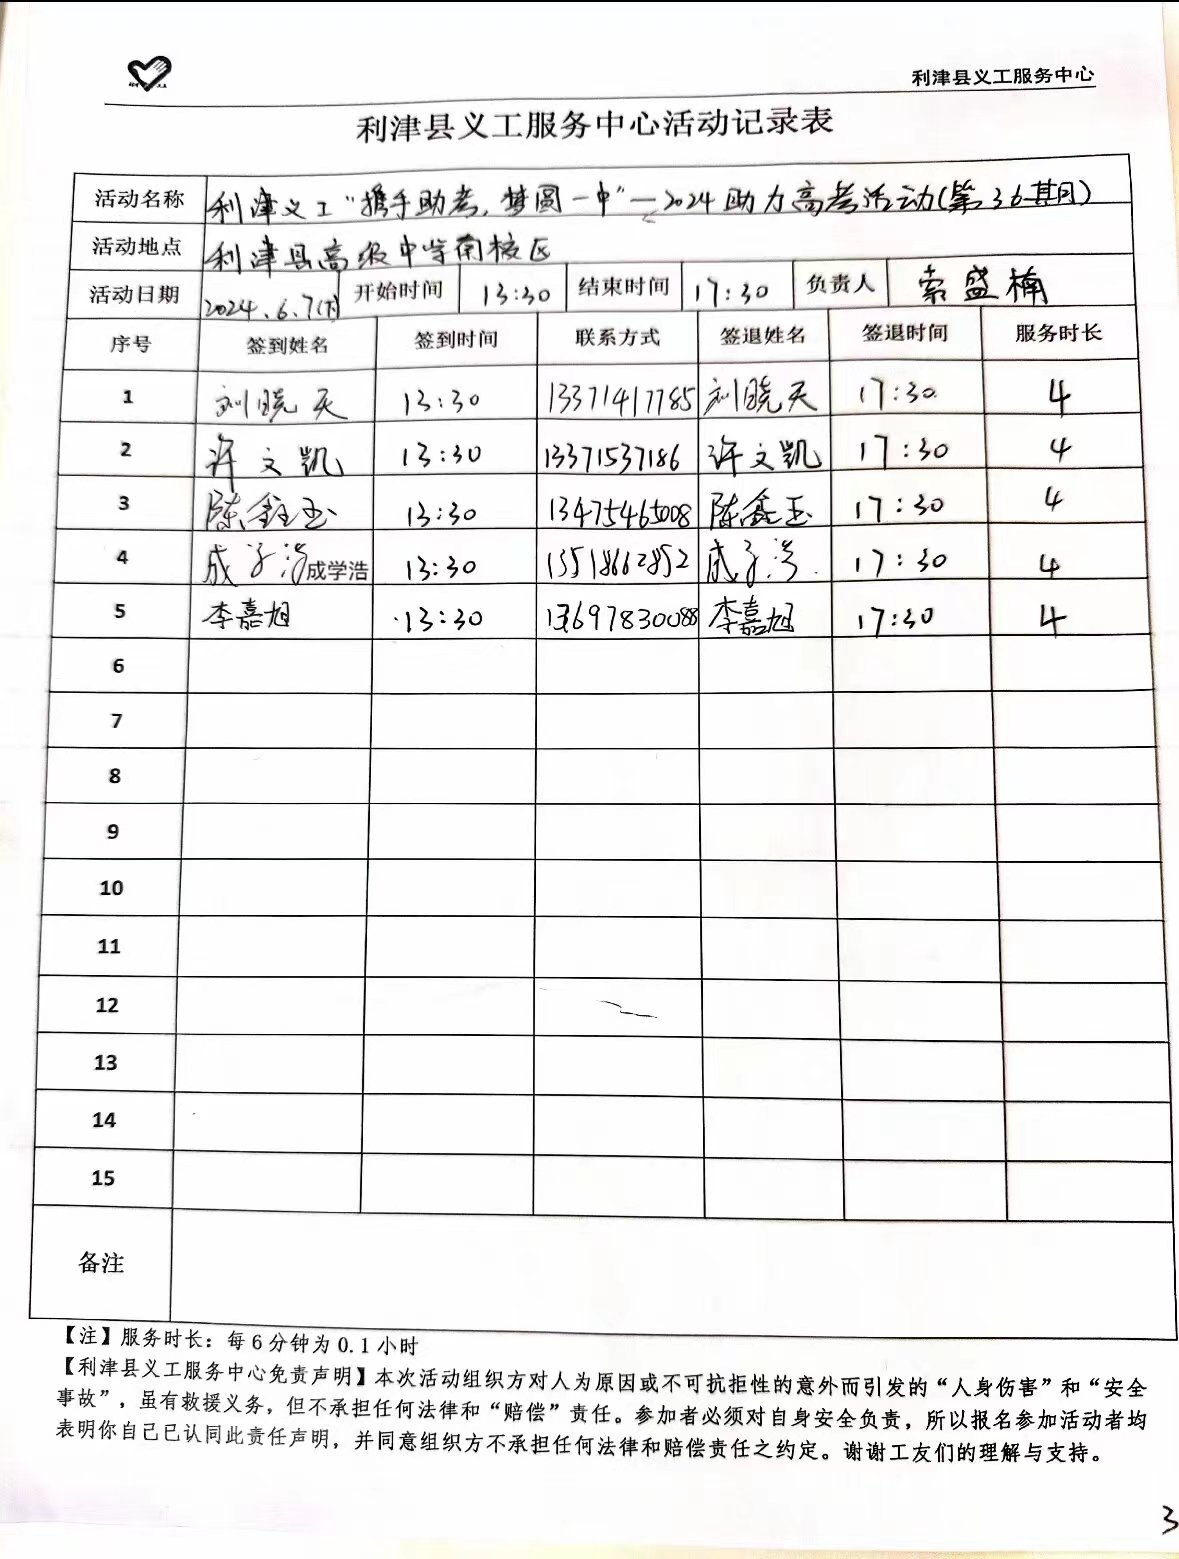 利津县义工服务中心
利津县义工服务中心活动记录表
活动名称 利津义工“携手助考,梦圆一中”—2024助力高考活动(第36期)
活动地点 利津县高级中学南校区
活动日期 2024.6.7(下) 开始时间 13:30 结束时间 17:30 负责人 索盛楠
序号 签到姓名 签到时间 联系方式 签退姓名 签退时间 服务时长
1 刘晓天 13:30 13371417785 刘晓天 17:30 4
2 许文凯 13:30 13371537186 许文凯 17:30 4
3 陈鑫玉 13:30 13475465008 陈鑫玉 17:30 4
4 成学浩 成学浩 13:30 15518662852 成学浩 17:30 4
5 李嘉旭 13:30 13697830088 李嘉旭 17:30 4
6
7
8
9
10
11
12
13
14
15
备注
【注】服务时长：每6分钟为0.1小时
【利津县义工服务中心免责声明】本次活动组织方对人为原因或不可抗拒性的意外而引发的“人身伤害”和“安全
事故”，虽有救援义务，但不承担任何法律和“赔偿”责任。参加者必须对自身安全负责，所以报名参加活动者均
表明你自己已认同此责任声明，并同意组织方不承担任何法律和赔偿责任之约定。谢谢工友们的理解与支持。
3